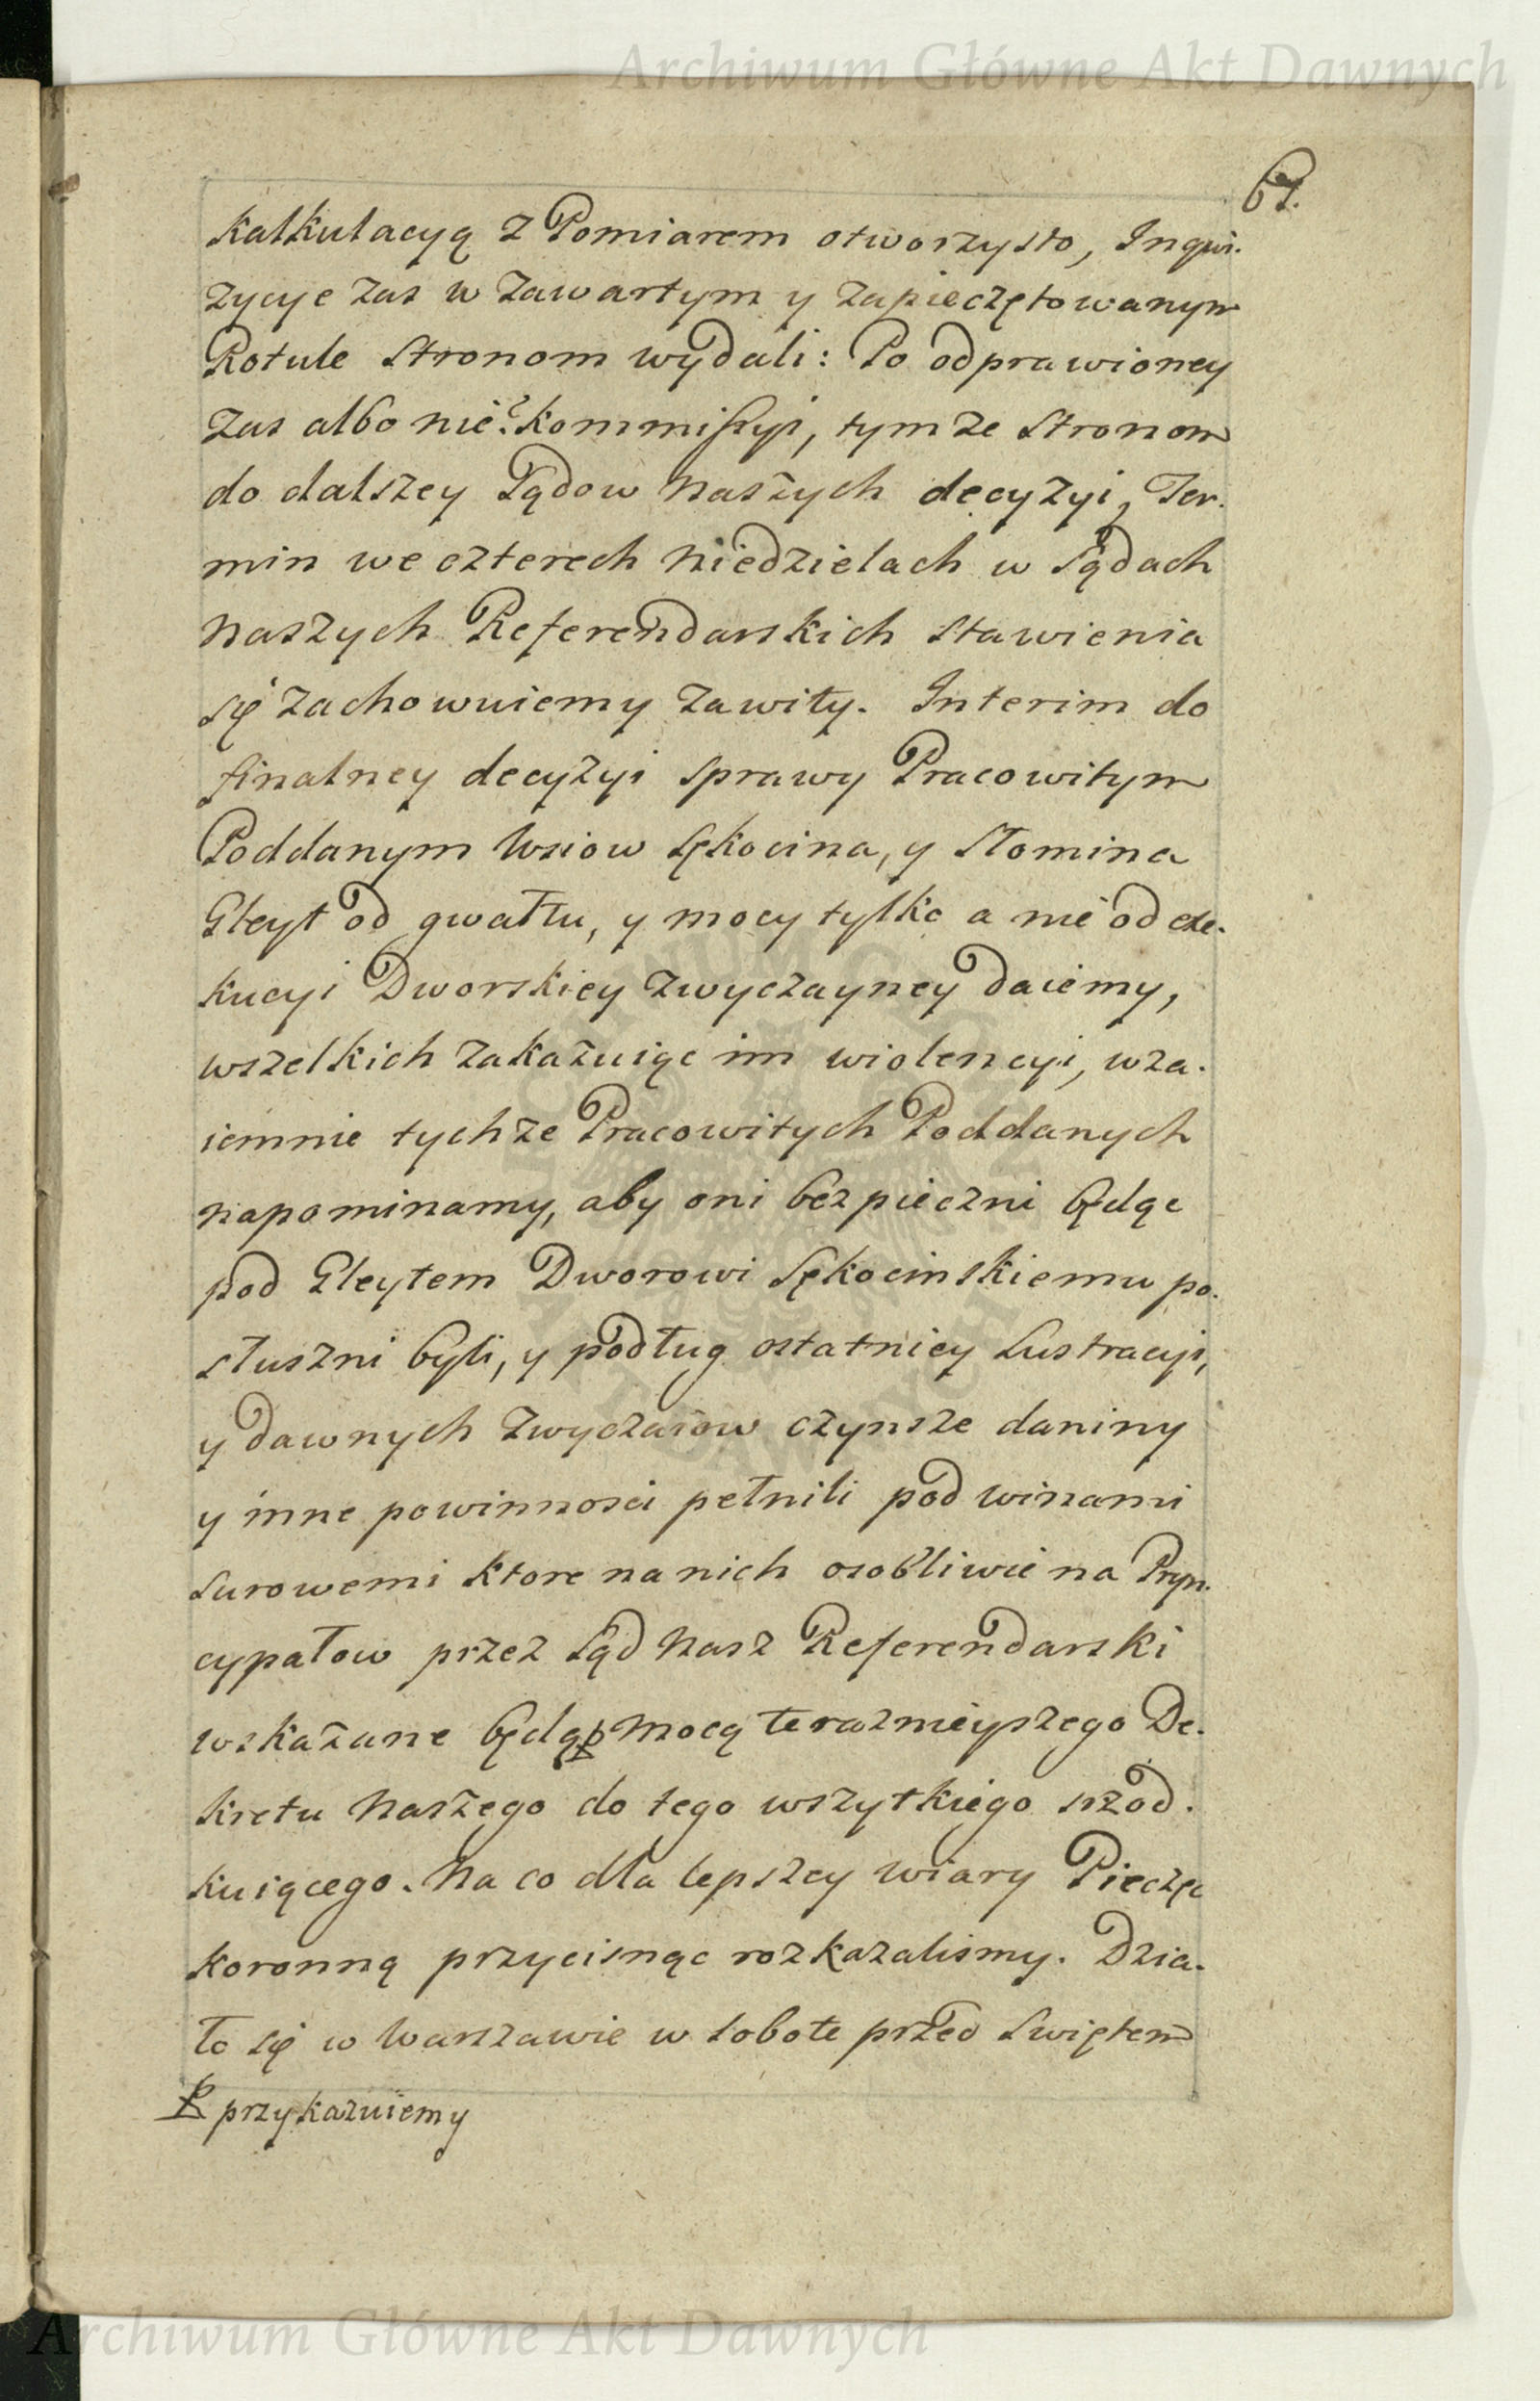 Archiwum Główne Akt Dawnych
67.
Kalkulacyą z Pomiarem otworzysto, Inqwi-
zycye zas w zawartym y zapieczętowanym
Rotule Stronom wydali: Po odprawioney
zas albo nie? Kommissyi, tymze Stronom
do dalszey Sądow Naszych decyzyi, Ter-
min we czterech Niedzielach w Sądach
Naszych Referendarskich stawienia
się zachowuiemy zawity. Interim do
finalney decyzyi sprawy Pracowitym
Poddanym Wsiow Sękocina, y Słomina
Gleyt od gwałtu, y mocy tylko a nie od exe-
kucyi Dworskiey zwyczayney daiemy,
wszelkich zakazuiąc im wiolencyi, wza-
iemnie tychze Pracowitych Poddanych
napominamy, aby oni bezpieczni będąc
pod Gleytem Dworowi Sękocinskiemu po-
słuszni byli, y podług ostatniey Lustracyi,
y dawnych zwyczaiow czynsze daniny
y inne powinnosci pełnili pod winami
surowemi ktore na nich osobliwie na Pryn-
cypałow przez Sąd Nasz Referendarski
wskazane będą Mocą teraznieyszego De-
kretu Naszego do tego wszytkiego srzod-
kuiącego. Na co dla lepszey wiary Pieczęc
koronną przycisnąc rozkazalismy. Dzia-
ło się w Warszawie w Sobotę przed Swiętem
przykazuiemy
Archiwum Główne Akt Dawnych